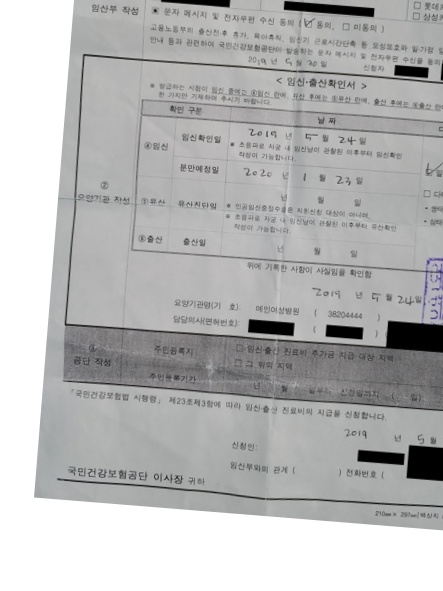 임산부 작성
문자 메시지 및 전자우편 수신 동의 (☑ 동의, □ 미동의)
고용노동부의 출산전후 휴가, 육아휴직, 임신기 근로시간단축 등 모성보호와 일가정
안내 등과 관련하여 국민건강보험공단이 발송하는 문자 메시지 및 전자우편 수신을
2019 년 5 월 20 일 신청인
< 임신·출산확인서 >
※ 발급하는 시점이 임신 중에는 ④임신 란에, 유산 후에는 ⑤유산 란에, 출산 후에는 ⑥출산 란에
한 가지만 기재하여 주시기 바랍니다.
확인 구분 날 짜
④임신 임신확인일 2019 년 5 월 24 일
※ 초음파로 자궁 내 임신낭이 관찰된 이후부터 임신확인
작성이 가능합니다.
분만예정일 2020 년 1 월 23 일
②
요양기관 작성
⑤유산 유산진단일 년 월 일
※ 인공임신중절수술은 지원신청 대상이 아니며,
※ 초음파로 자궁 내 임신낭이 관찰된 이후부터 유산확인
작성이 가능합니다.
⑥출산 출산일 년 월 일
위에 기록한 사항이 사실임을 확인함
2019 년 5 월 24 일
요양기관명(기 호) 예인여성병원 ( 38204444 )
담당의사(면허번호) ( )
③
공단 작성
주민등록지 □ 임신·출산 진료비 추가금 지급 대상 지역
□ 그 밖의 지역
주민등록기간 년 월 일부터 신청일까지 ( 일)
「국민건강보험법 시행령」 제23조제3항에 따라 임신·출산 진료비의 지급을 신청합니다.
2019 년 5 월
신청인:
임산부와의 관계 ( ) 전화번호 (
국민건강보험공단 이사장 귀하
210㎜× 297㎜[백상지